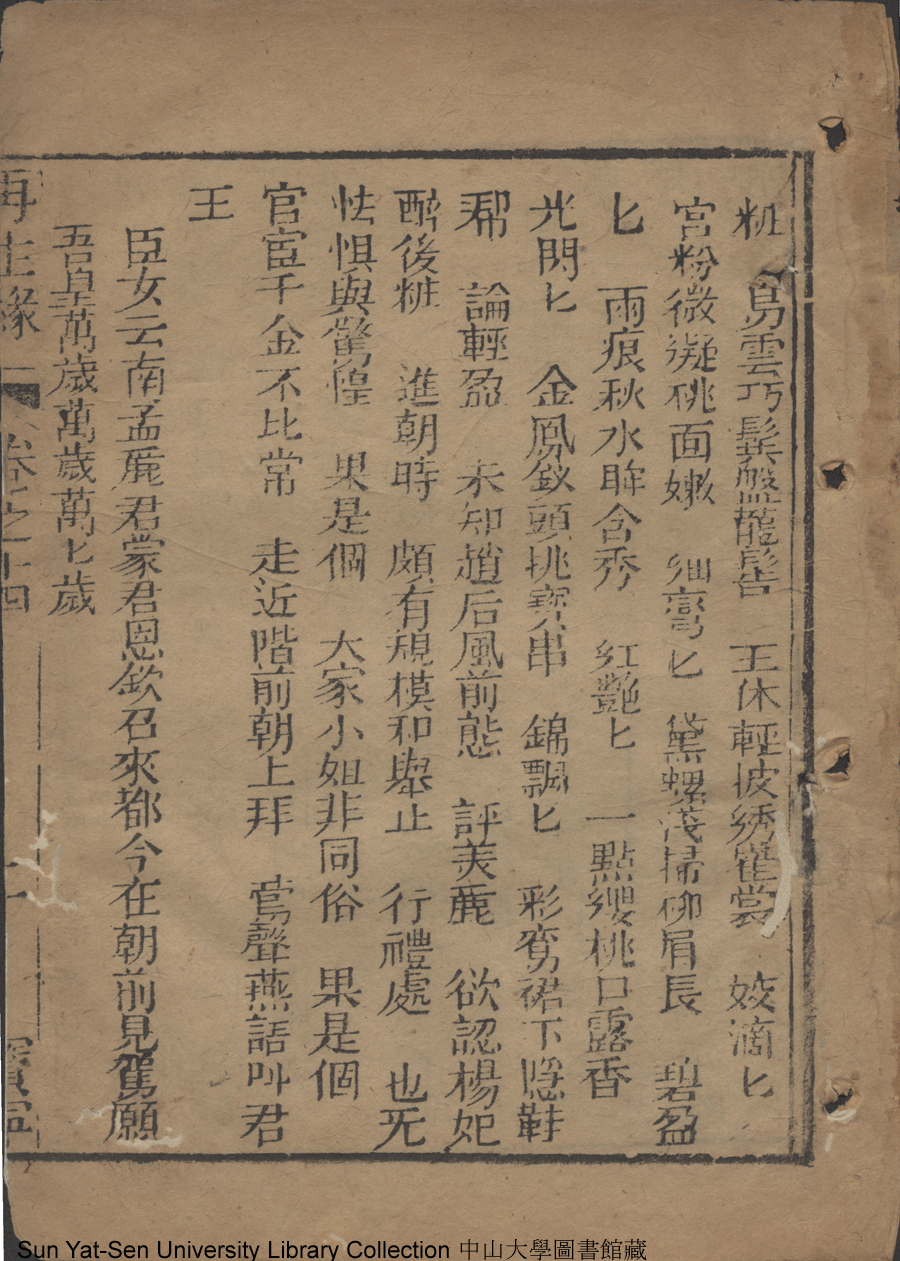 粧 烏雲巧鬂盤龍髻 玉体輕披綉雀裳 姣滴匕
宮粉微凝桃面嫩 細彎匕 黛螺淺掃柳眉長 碧盈
匕 雨痕秋水眸含秀 紅艷匕 一點纓桃口露香
光閃匕 金鳳釵頭挑寶串 錦飄匕 彩鸞裙下隐鞋
帮 論輕盈 未知趙后風前態 評美麗 欲認楊妃
醉後粧 進朝時 頗有規模和舉止 行禮處 也无
怯惧與驚惶 果是個 大家小姐非同俗 果是個
官宦千金不比常 走近階前朝上拜 鶯聲燕語叫君
王
臣女云南孟麗君蒙君恩欽召來都今在朝前見駕願
吾皇萬歲萬歲萬匕歲
再生緣 卷之十四 一